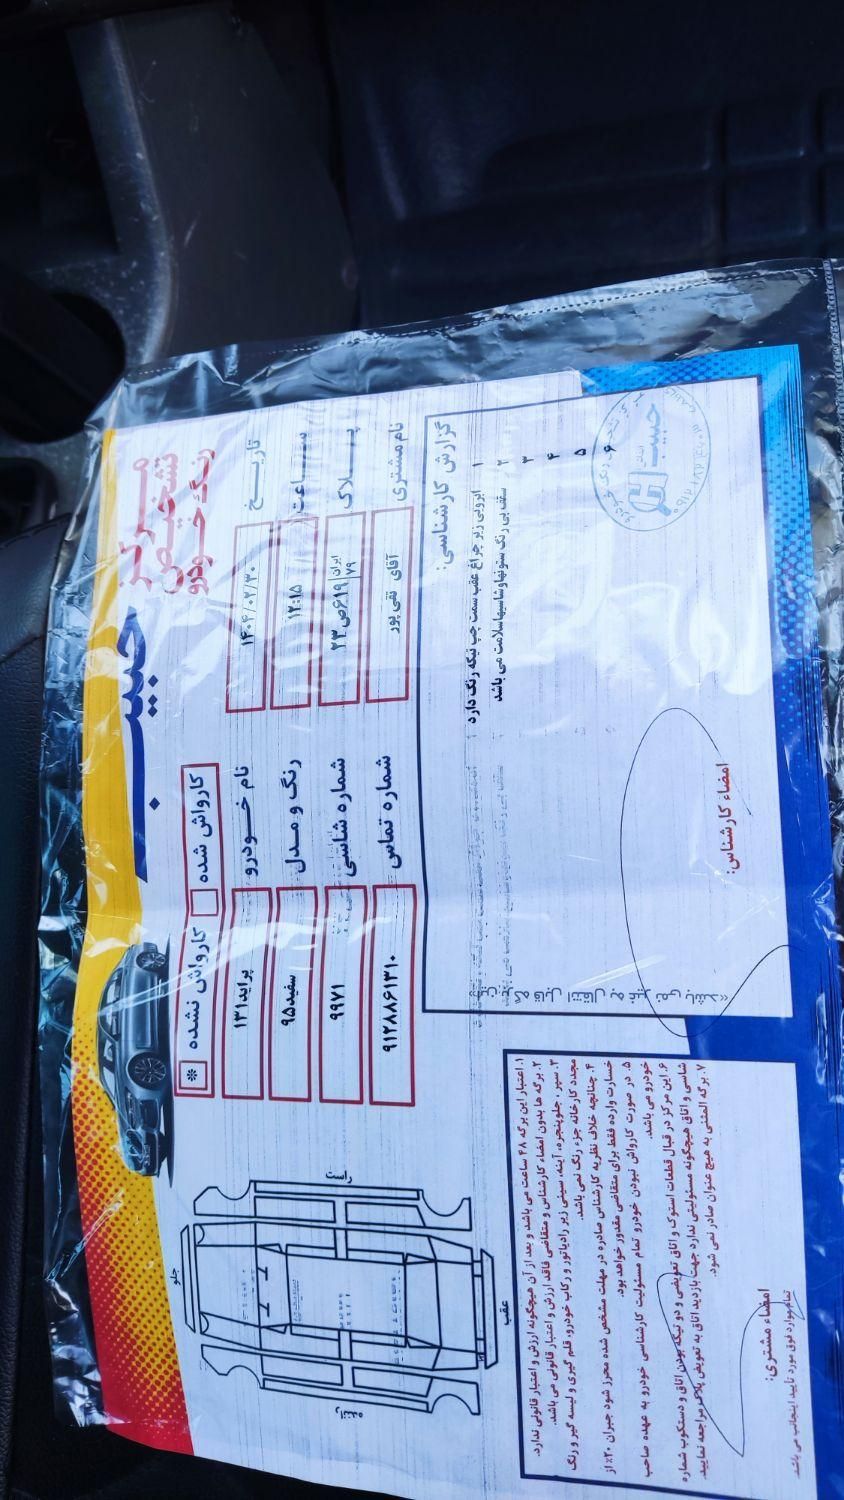 مرکز
تشخیص
رنگ خودرو
حبیب
کارواش شده
کارواش نشده *
تاریخ ۱۴۰۴/۰۲/۳۰
نام خودرو پراید۱۳۱
ساعت ۱۲:۱۵
رنگ و مدل سفید۹۵
پلاک ۲۳ص۶۱۹ ایران ۷۹
شماره شاسی ۹۹۷۱
نام مشتری آقای تقی پور
شماره تماس ۹۱۲۸۸۶۱۳۱۰
گزارش کارشناسی:
۱ ابرولی زیر چراغ عقب سمت چپ تیکه رنگ دارد
۲ سقف بی رنگ ستونهاوشاسیهاسلامت می باشد
۳
۴
۵
۶
حبیب
امضاء کارشناس:
جلو
عقب
راننده
۱. اعتبار این برگه ۴۸ ساعت می باشد و بعد از آن هیچگونه ارزش و اعتبار قانونی ندارد.
۲. برگه ها بدون امضاء کارشناس و متقاضی فاقد ارزش و اعتبار قانونی می باشد.
۳. سپر، جلوپنجره، آینه، سینی زیر رادیاتور و رکاب خودرو، قلم گیری و لیسه گیر و رنگ
مجدد کارخانه جزء رنگ نمی باشد.
۴. چنانچه خلاف نظریه کارشناس صادره در مهلت مشخص شده محرز شود جبران ۲۰٪ از
خسارت وارده فقط برای متقاضی مقدور خواهد بود.
۵. در صورت کارواش نبودن خودرو تمام مسئولیت کارشناسی خودرو به عهده صاحب
خودرو می باشد.
۶. این مرکز در قبال قطعات استوک و اتاق تعویضی و دو تیکه بودن اتاق و دستکوب شماره
شاسی و اتاق هیچگونه مسئولیتی ندارد جهت بازدید اتاق به تعویض پلاک مراجعه نمایید.
۷. برگه المثنی به هیچ عنوان صادر نمی شود.
امضاء مشتری:
تمام موارد فوق مورد تایید اینجانب می باشد.